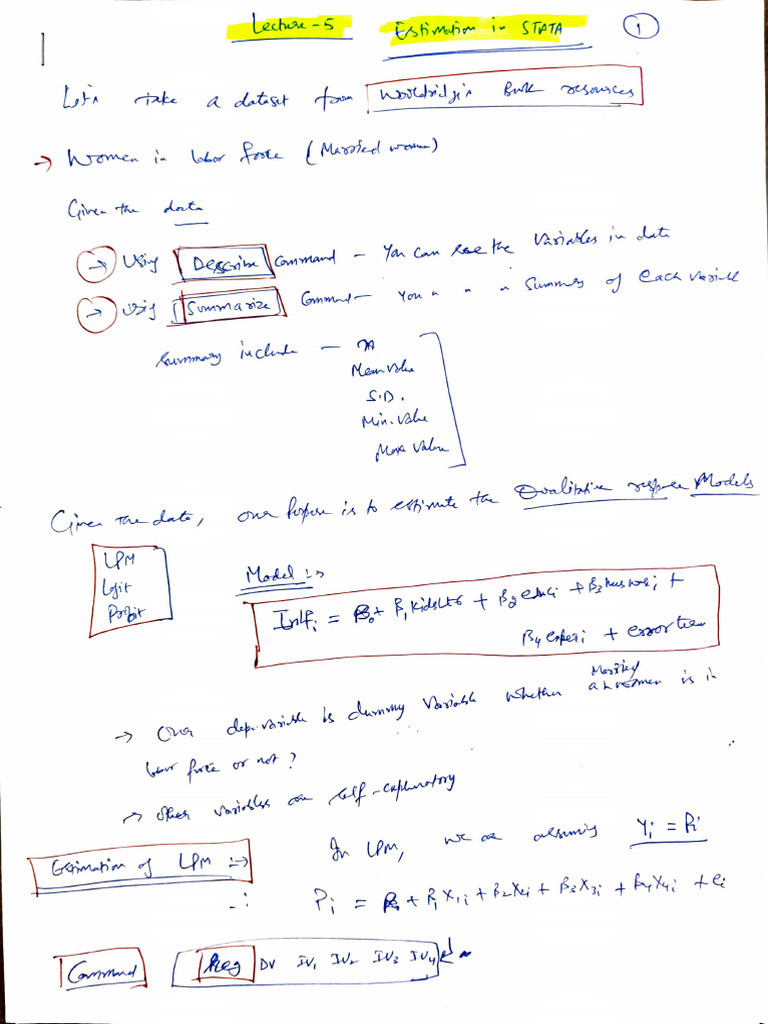 Lecture-5 Estimation in STATA 1
Let's take a dataset from Wooldridge's Book resources
→ Women in labor force (Married women)
Given the data
→ Using Describe Command – You can see the variables in data
→ Using Summarize Command – You " " " Summary of each variable
Summary include – n
Mean value
S.D.
Min. value
Max value
Given the data, our purpose is to estimate the Qualitative respose Models
LPM
Logit
Probit
Model :→
Inlf_i = β_0 + β_1 kidslt6 + β_2 educ_i + β_3 huswor_i +
β_4 exper_i + error term
→ Our dep. variable is dummy variable whether a Married women is in
labor force or not?
→ other variables are self-explanatory
Estimation of LPM :→ In LPM, we are assuming Y_i = P_i
∴ P_i = β_0 + β_1 X_1i + β_2 X_2i + β_3 X_3i + β_4 X_4i + e_i
Command Reg DV IV_1 IV_2 IV_3 IV_4 ↵